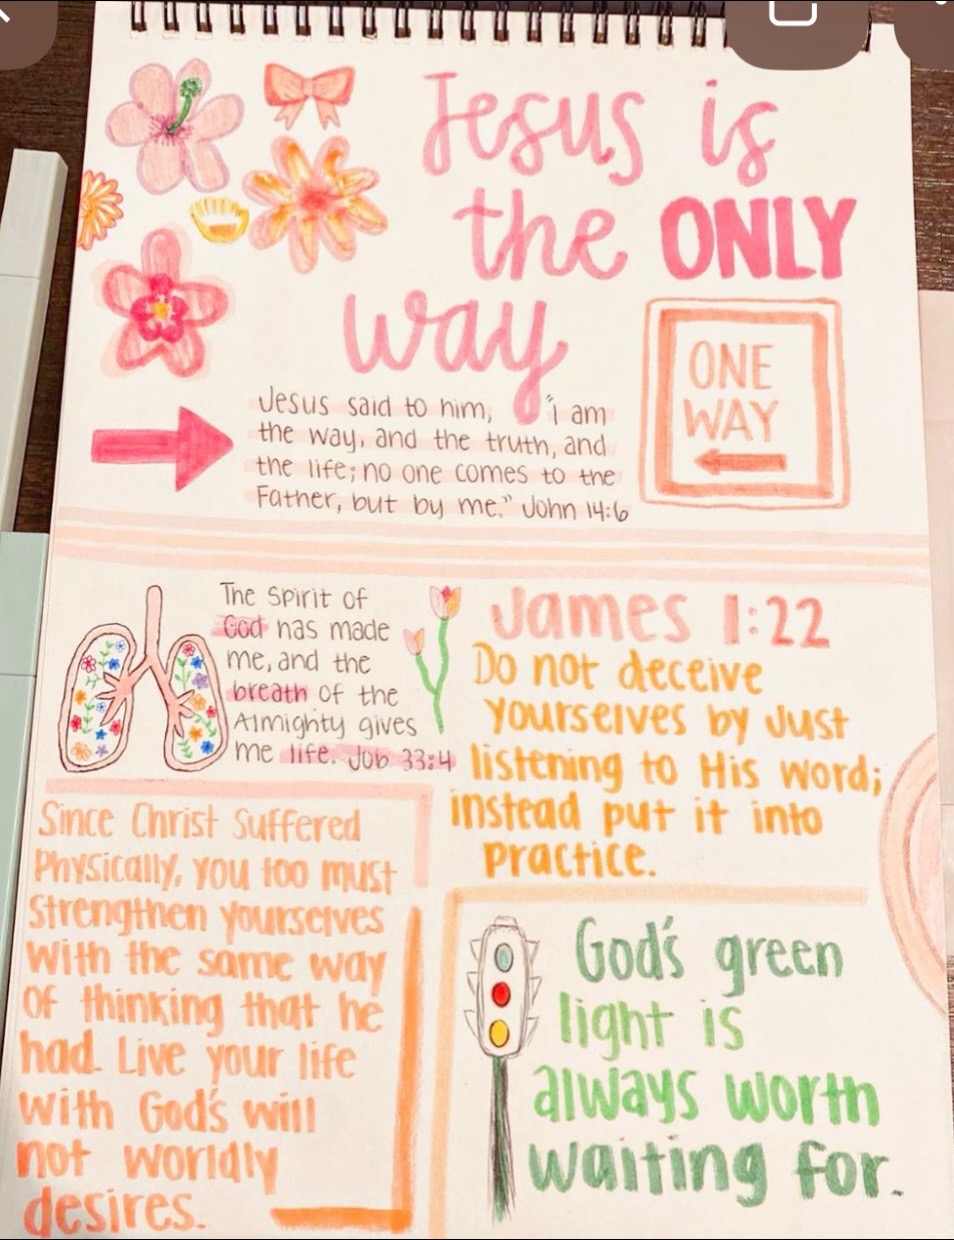 Jesus is
the ONLY
way
Jesus said to him, "i am
the way, and the truth, and
the life; no one comes to the
Father, but by me." John 14:6
ONE
WAY
The Spirit of
God has made
me, and the
breath of the
Almighty gives
me life. Job 33:4
James 1:22
Do not deceive
yourselves by Just
listening to His word;
instead put it into
practice.
Since Christ Suffered
Physically, you too must
strengthen yourselves
with the same way
of thinking that he
had. Live your life
with God's will
not worldly
desires.
God's green
light is
always worth
waiting for.